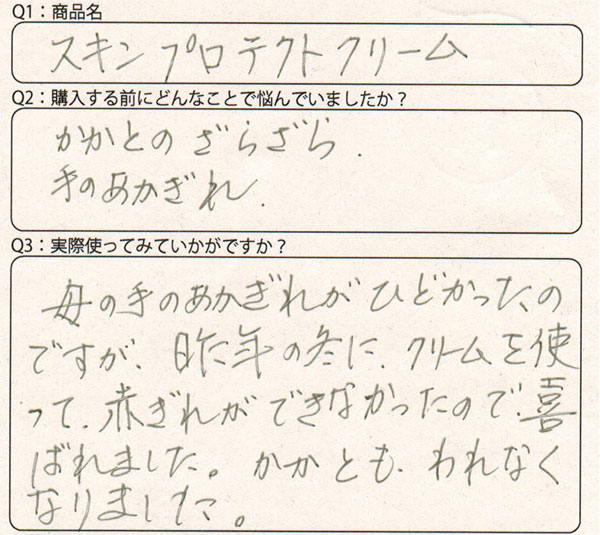 Q1：商品名
スキンプロテクトクリーム
Q2：購入する前にどんなことで悩んでいましたか？
かかとの ざらざら．
手のあかぎれ．
Q3：実際使ってみていかがですか？
母の手のあかぎれが ひどかったの
ですが、昨年の冬に、クリームを使
って、赤ぎれができなかったので、喜
ばれました。かかとも、われなく
なりました。